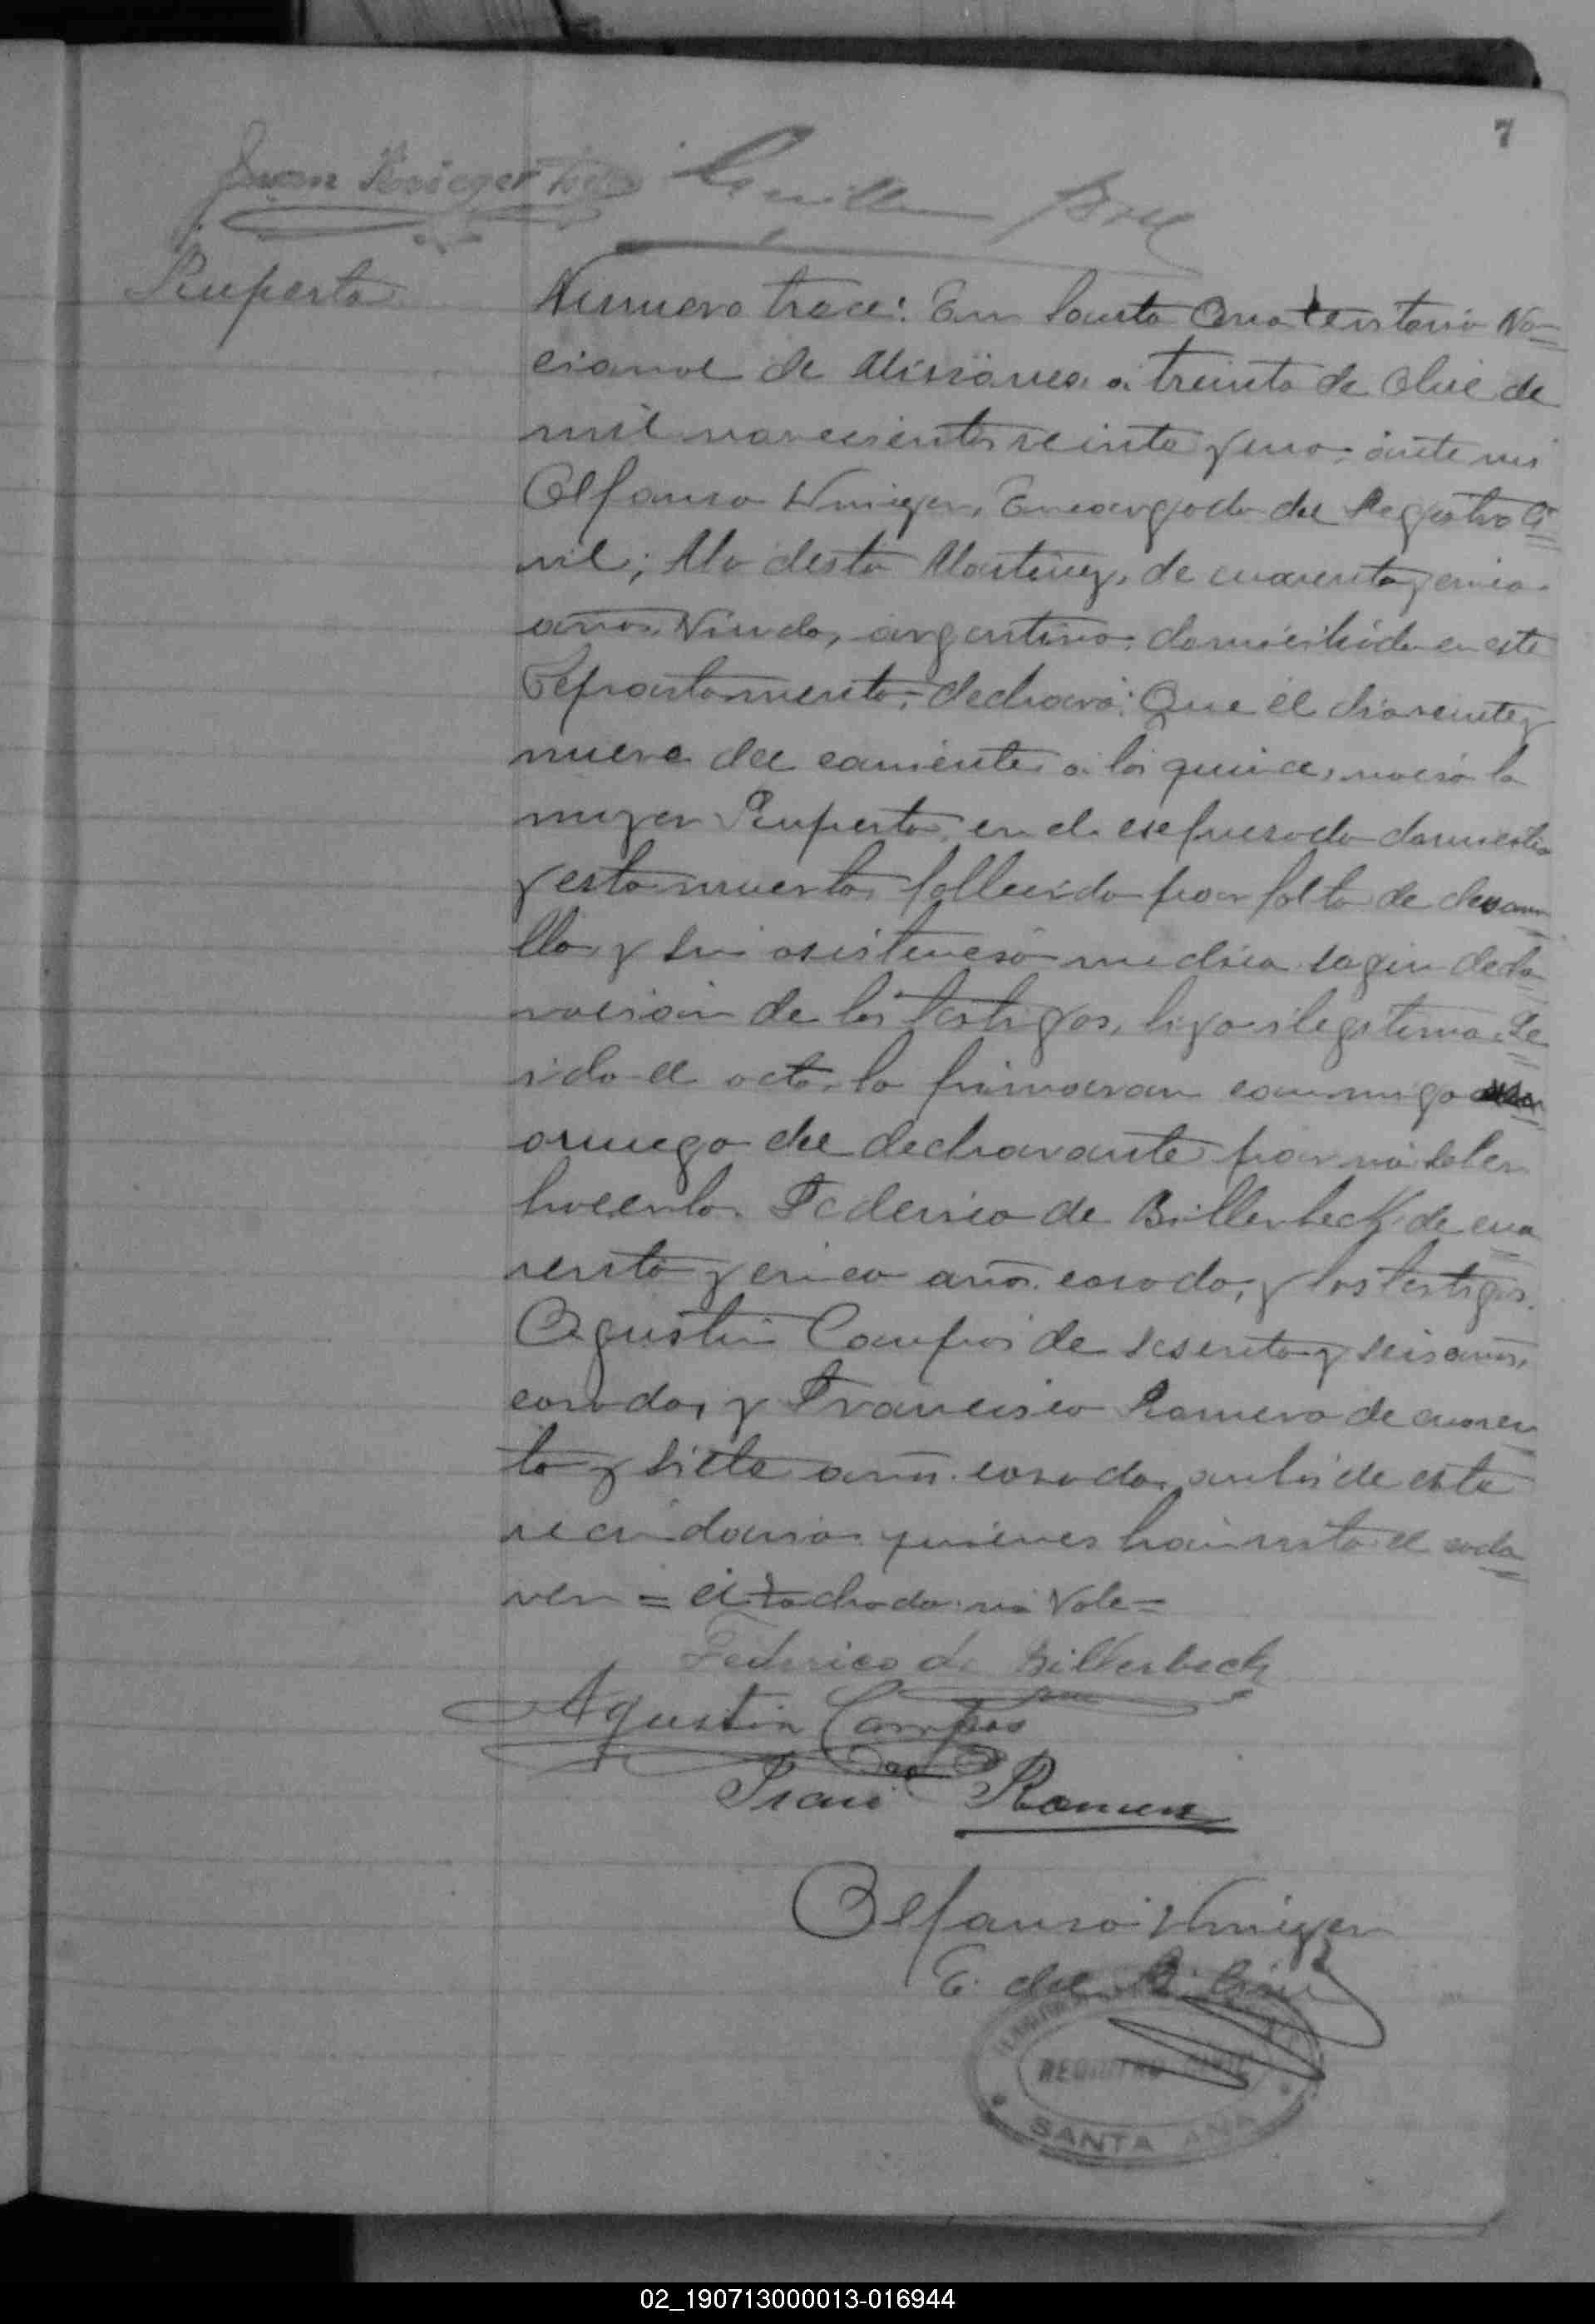 7
Juan Krieger hijo Guillermo
Ruperta
Numero trece: En Santa Ana territorio Na=
cional de Misiones a treinta de Abril de
mil novecientos veinte y uno, ante mi
Alfonso Encargado del Registro Ci=
vil; Modesto Martinez, de cuarenta y cinco
años, Viudo, argentino, domiciliado en este
Departamento, declaró: Que el dia veinte y
nueve del corriente a las quince, nació la
mujer Ruperta, en el expresado domicilio
y esta muerta, fallecida por falta de desarro
llo, y sin asistencia medica segun decla
racion de los testigos, hija ilegitima. Le
ida el acta, la firmaron conmigo
a ruego del declarante por no saber
hacerlo, Federico de Billerbeck, de cua
renta y cinco años, casado, y los testigos.
Agustin Campos de sesenta y seis años,
casado, y Francisco Romero de cuaren
ta y siete años, casado, ambos de este
vecindario quienes han visto el cada
ver = El tachado no Vale =
Federico de Billerbeck
Agustin Campos
Franco Romero
Alfonso
E. del R. Civil
REGISTRO CIVIL
SANTA ANA
02_190713000013-016944